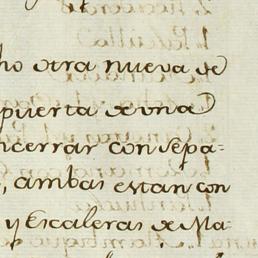 ho otra nueva de
puerta de una
ncerrar con sepa-
, ambas estan con
y Escaleras de Ma-